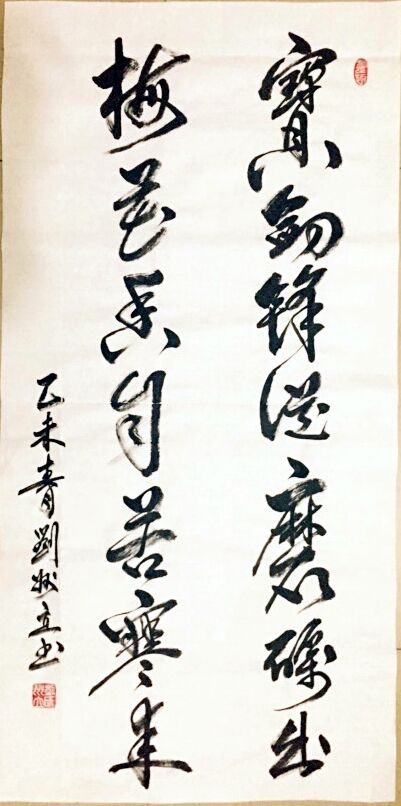 寶劍鋒從磨礪出
梅花香自苦寒來
乙未 劉 立书